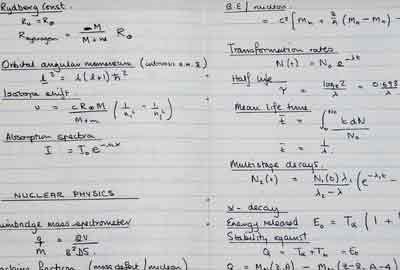 Rydberg Const.
R∞ = R∞
R_Hydrogen = M / (M + m) R∞
Orbital angular momentum
l² = l(l+1) ħ²
Isotope shift.
υ = cR∞M / (M+m) (1/n₁² - 1/n₂²)
Absorption spectra
I = I₀e^-nαx
NUCLEAR PHYSICS
Bainbridge mass spectrometer
q/m = 2V / B²DS
fraction (mass defect / nucleon)
B.E / nucleon
= c² [Mn + Z/A (MH - Mn) -
Transformation rates.
N(t) = N₀ e^-λt
Half life
τ = loge2 / λ = 0.693 / λ
Mean life time
t̄ = ∫₀^N₀ t dN / N₀
t̄ = 1/λ
Multistage decays.
N₂(t) = N₁(0) λ₁ / (λ₂ - λ₁) (e^-λ₁t -
α - decay
Energy released E₀ = Tα (1 +
Stability against
Q = Tα + Tb = E₀
Q = (Z, A) - (Z-2, A-4)